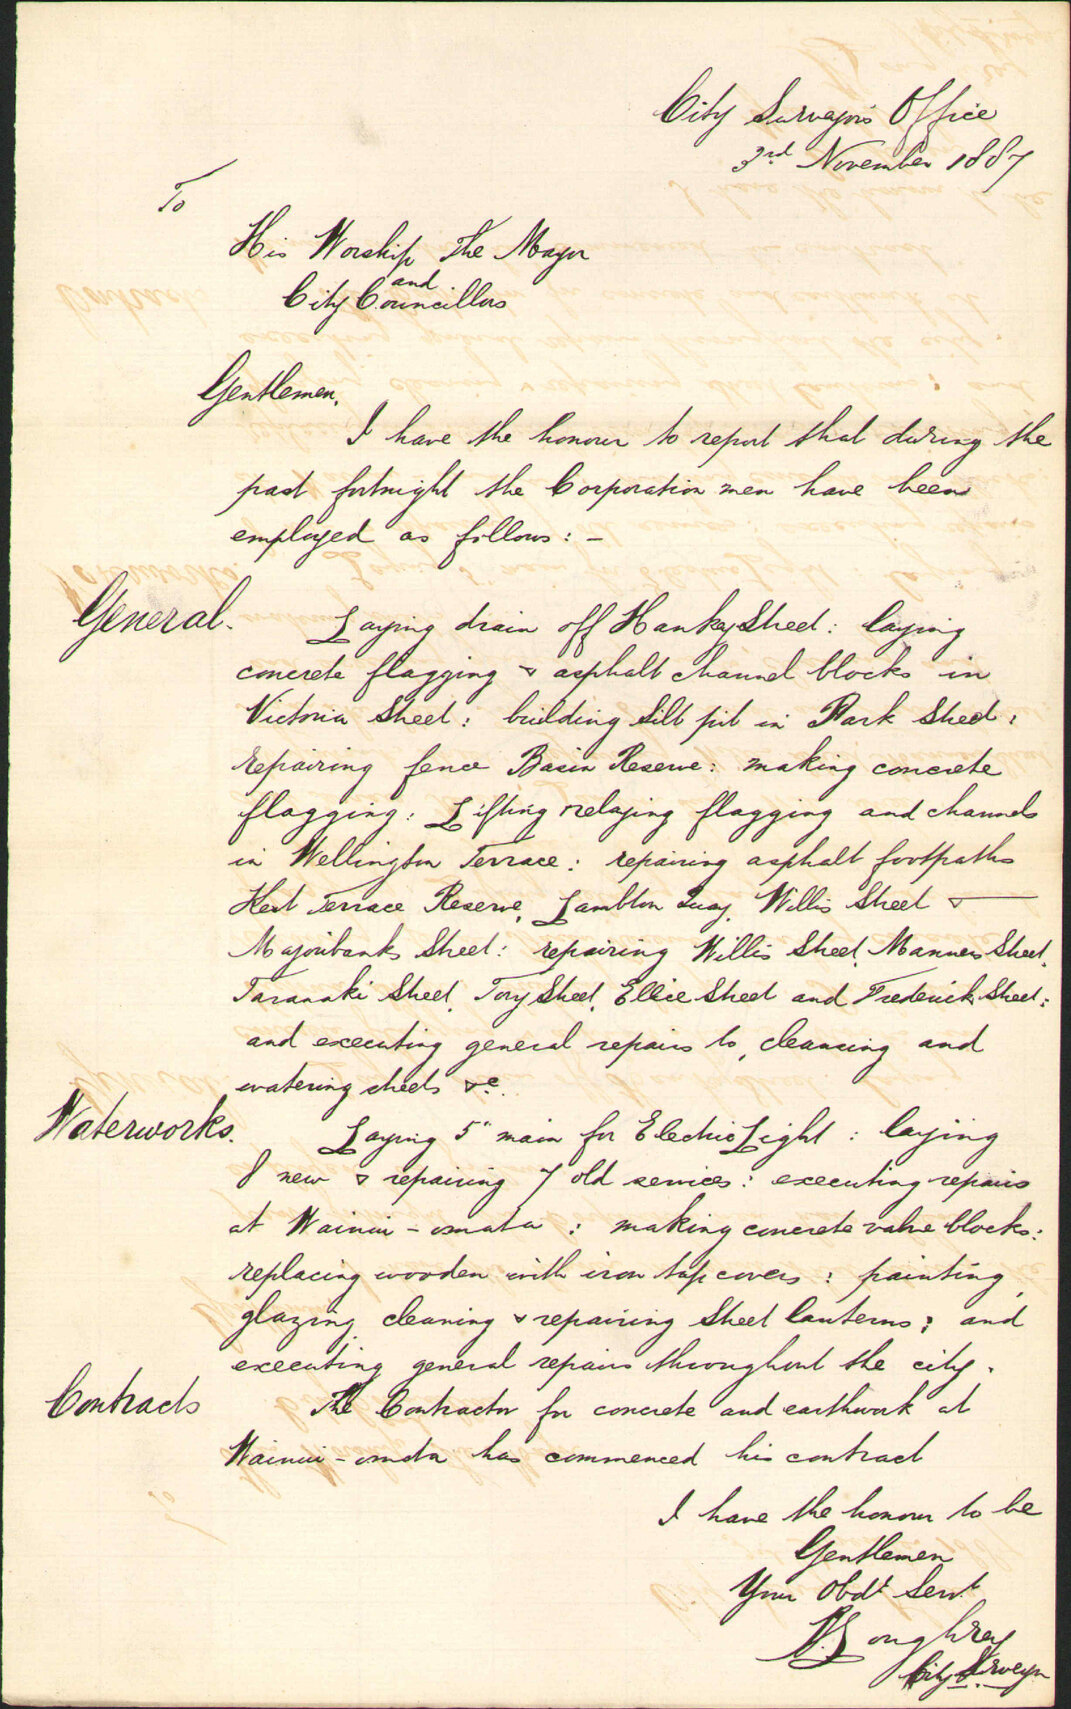 City Surveyors Office
3rd November 1887
To
His Worship The Mayor
and
City Councillors
Gentlemen,
I have the honour to report that during the
past fortnight the Corporation men have been
employed as follows: -
General.
Laying drain off Hankey Street: laying
concrete flagging & asphalt channel blocks in
Victoria Street: building silt pit in Park Street:
repairing fence Basin Reserve: making concrete
flagging: Lifting relaying flagging and channels
in Wellington Terrace: repairing asphalt footpaths
Kent Terrace Reserve, Lambton Quay, Willis Street &
Majoribanks Street: repairing Willis Street, Manners Street,
Taranaki Street, Tory Street, Ellice Street and Frederick Street:
and executing general repairs to, cleansing and
watering streets &c.
Waterworks.
Laying 5" main for Electric Light: laying
8 new & repairing 7 old services: executing repairs
at Wainui-omata: making concrete valve blocks:
replacing wooden with iron tap covers: painting,
glazing, cleaning & repairing Street lanterns; and
executing general repairs throughout the city.
Contracts
The Contractor for concrete and earthwork at
Wainui-omata has commenced his contract
I have the honour to be
Gentlemen
Your Obdt Servt
Loughrey
City Surveyor